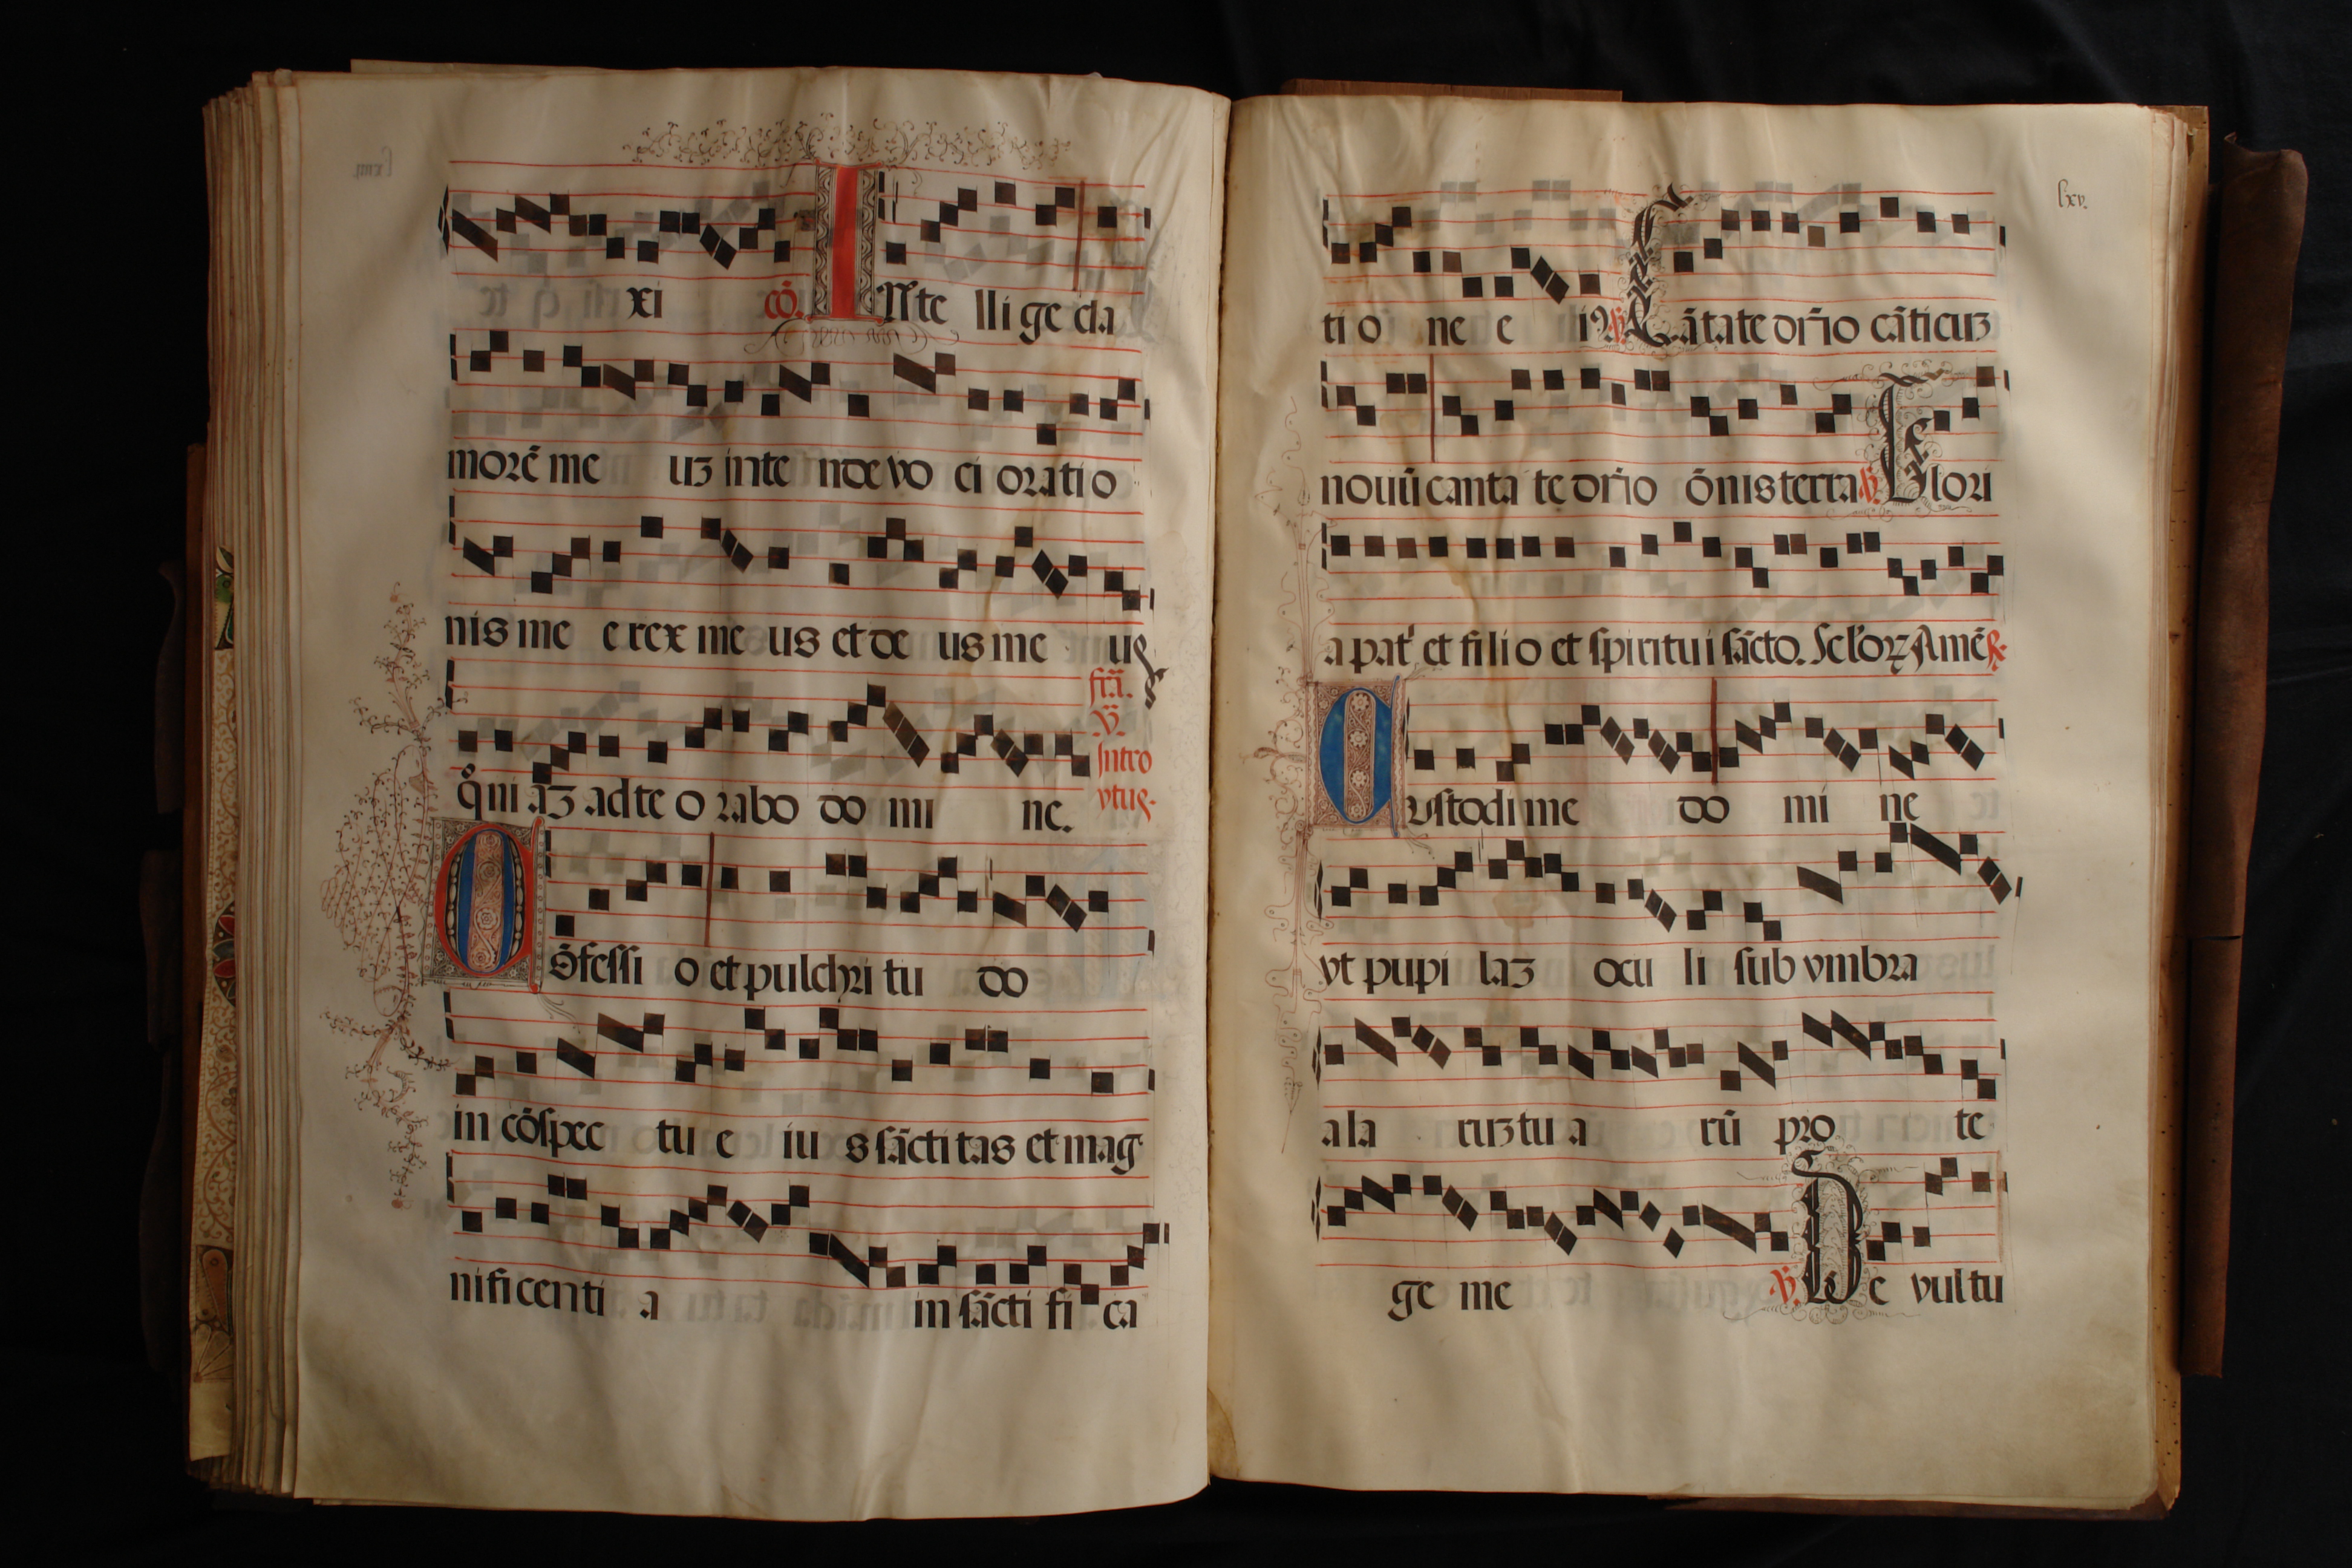 xi cō. INte lli ge cla
morē me uȝ inte nde vo ci oratio
nis me e rex me us et de us me us
fr̄a.
v̄.
qm̄ aȝ ad te o rabo do mi ne.
Intro
ytus.
Cōfessi o et pulchri tu do
in cōspec tu e iu s sācti tas et mag
nificenti a in sācti fi ca
lxv.
ti o ne e iꝰ. ps Cātate dn̄o cāticuȝ
nouū canta te dn̄o ōnis terra. v̄. Glori
a pat' et filio et spiritui sācto. Sclo'ꝝ Amē ℟.
Custodi me do mi ne
vt pupi laȝ ocu li sub vmbra
ala ruȝ tu a rū pro te
ge me v̄. De vultu